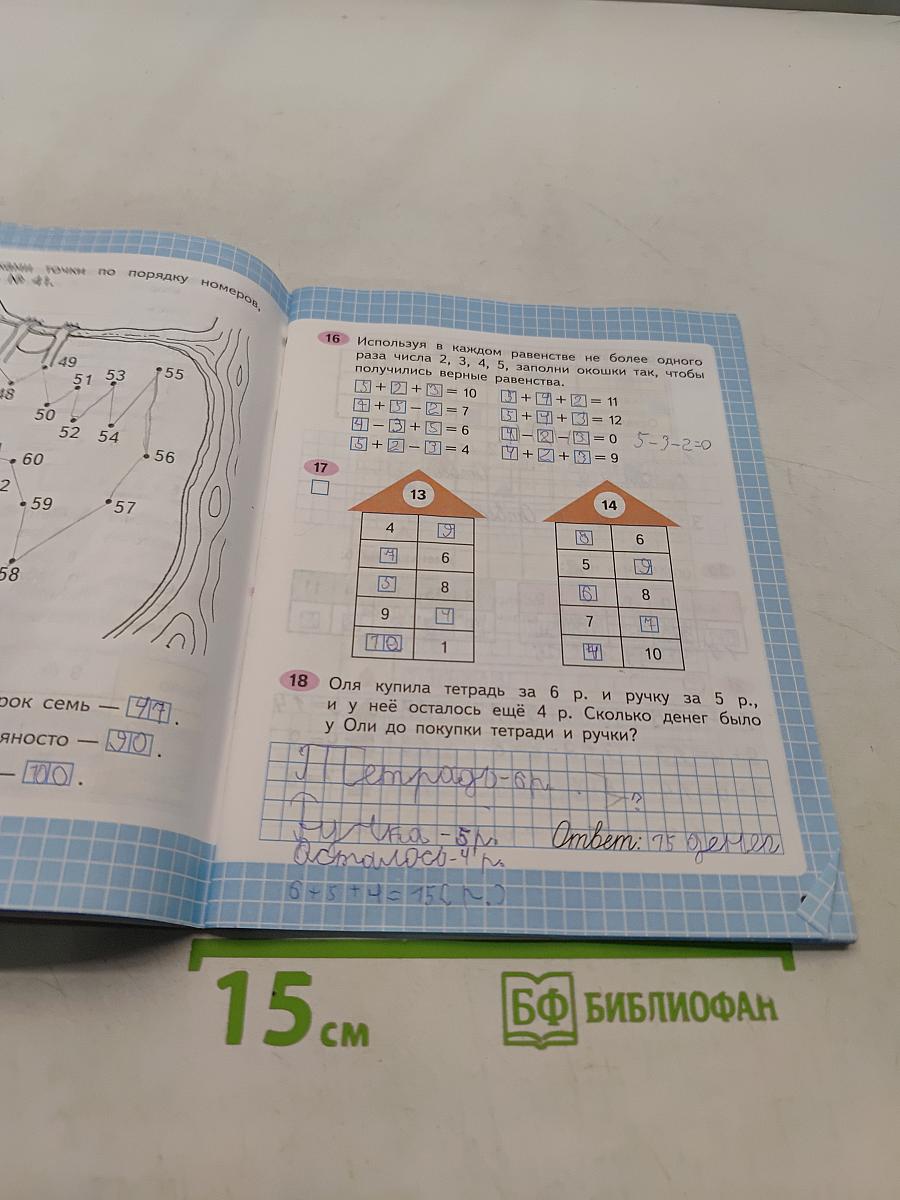 точки по порядку номеров,
49
48
51
53
55
50
52
54
56
60
59
57
58
рок семь — 47.
яносто — 90.
— 100.
16 Используя в каждом равенстве не более одного
раза числа 2, 3, 4, 5, заполни окошки так, чтобы
получились верные равенства.
5 + 2 + 3 = 10
5 + 4 + 2 = 11
4 + 5 - 2 = 7
5 + 4 + 3 = 12
4 - 3 + 5 = 6
- 2 - 3 = 0 5-3-2=0
5 + 2 - 3 = 4
4 + 2 + 3 = 9
17
13
4 9
7 6
5 8
9 4
10 1
14
8 6
5 9
6 8
7 7
4 10
18 Оля купила тетрадь за 6 р. и ручку за 5 р.,
и у неё осталось ещё 4 р. Сколько денег было
у Оли до покупки тетради и ручки?
Тетрадь-6р. ?
Ручка -5р. Ответ: 15 денег
Осталось-4 р.
6+5+4=15(р.)
15 см
БФ БИБЛИОФАН